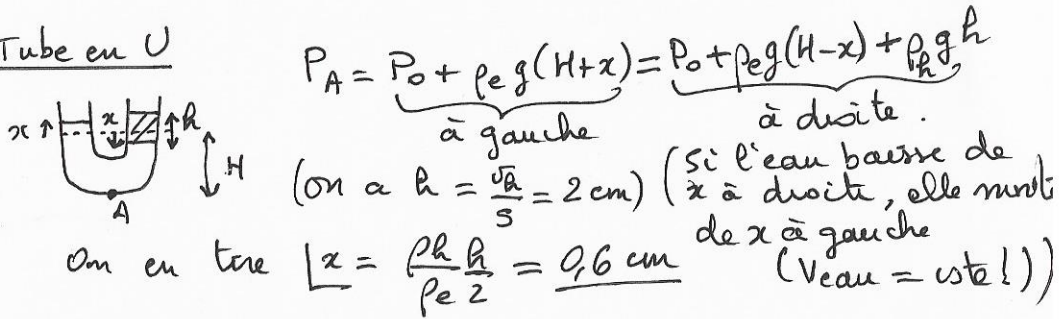 Tube en U
P_A = P_0 + ρ_e g (H+x) = P_0 + ρ_e g (H-x) + ρ_h g h
à gauche
à droite.
x
x
h
H
A
(on a h = V_h/S = 2 cm) (Si l'eau baisse de
x à droite, elle monte
de x à gauche
(Veau = cste !))
On en tire x = ρ_h/ρ_e h/2 = 0,6 cm